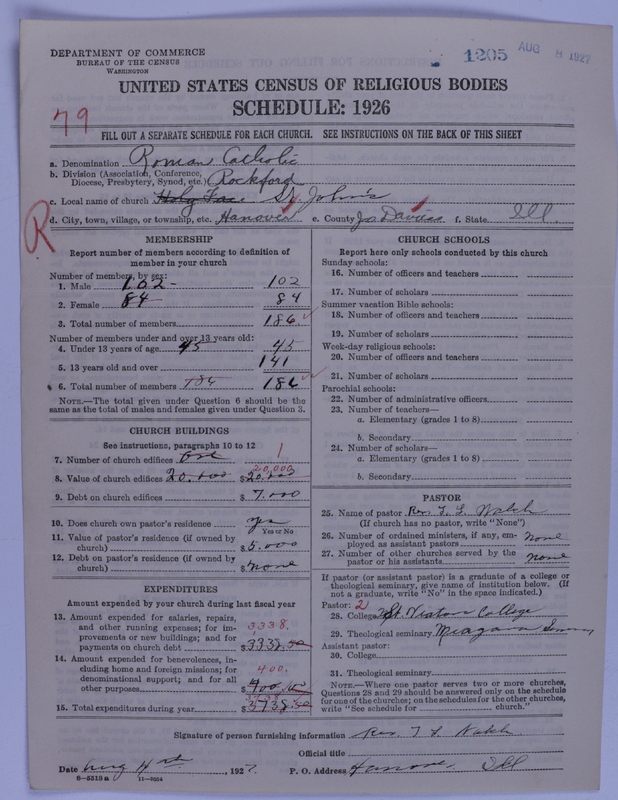 DEPARTMENT OF COMMERCE
BUREAU OF THE CENSUS
WASHINGTON
1205 AUG 8 1927
UNITED STATES CENSUS OF RELIGIOUS BODIES
SCHEDULE: 1926
79
FILL OUT A SEPARATE SCHEDULE FOR EACH CHURCH. SEE INSTRUCTIONS ON THE BACK OF THIS SHEET
a. Denomination Roman Catholic
b. Division (Association, Conference, Diocese, Presbytery, Synod, etc.) Rockford
c. Local name of church St. John's
d. City, town, village, or township, etc. Hanover e. County Jo Daviess f. State Ill.
R
MEMBERSHIP
Report number of members according to definition of
member in your church
Number of members, by sex:
1. Male 102 - 102
2. Female 84 84
3. Total number of members 186
Number of members under and over 13 years old:
4. Under 13 years of age 45 45
5. 13 years old and over 141
6. Total number of members 186 186
NOTE.—The total given under Question 6 should be
same as the total of males and females given under Question 3.
CHURCH BUILDINGS
See instructions, paragraphs 10 to 12
7. Number of church edifices One 1
20,000
8. Value of church edifices 20.000 $20.000
9. Debt on church edifices $7.000
10. Does church own pastor's residence yes
Yes or No
11. Value of pastor's residence (if owned by
church) $5.000
12. Debt on pastor's residence (if owned by
church) $none
EXPENDITURES
Amount expended by your church during last fiscal year
13. Amount expended for salaries, repairs,
and other running expenses; for im-
provements or new buildings; and for
payments on church debt 3338. $3338.50
14. Amount expended for benevolences, in-
cluding home and foreign missions; for
denominational support; and for all
other purposes 400. $400.00
15. Total expenditures during year $3738.50
CHURCH SCHOOLS
Report here only schools conducted by this church
Sunday schools:
16. Number of officers and teachers
17. Number of scholars
Summer vacation Bible schools:
18. Number of officers and teachers
19. Number of scholars
Week-day religious schools:
20. Number of officers and teachers
21. Number of scholars
Parochial schools:
22. Number of administrative officers
23. Number of teachers—
a. Elementary (grades 1 to 8)
b. Secondary
24. Number of scholars—
a. Elementary (grades 1 to 8)
b. Secondary
PASTOR
25. Name of pastor Rev. T. L. Walsh
(If church has no pastor, write "None")
26. Number of ordained ministers, if any, em-
ployed as assistant pastors none
27. Number of other churches served by the
pastor or his assistants none
If pastor (or assistant pastor) is a graduate of a college or
theological seminary, give name of institution below. (If
not a graduate, write "No" in the space indicated.)
Pastor: 2
28. College St. Viator College
29. Theological seminary Niagara
Assistant pastor:
30. College
31. Theological seminary
NOTE.—Where one pastor serves two or more churches,
Questions 28 and 29 should be answered only on the schedule
for one of the churches; on the schedules for the other churches,
write "See schedule for church."
Signature of person furnishing information Rev. T L Walsh
Official title
Date Aug 4th, 1927. P. O. Address Hanover, Ill
8—5518a 11—9564